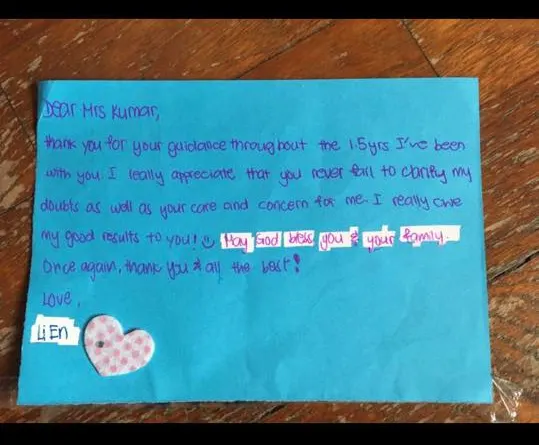 Dear Mrs Kumar,
thank you for your guidance throughout the 1.5yrs I've been
with you. I really appreciate that you never fail to clarify my
doubts as well as your care and concern for me. I really owe
my good results to you! May God bless you & your family.
Once again, thank you & all the best!
Love,
Li En